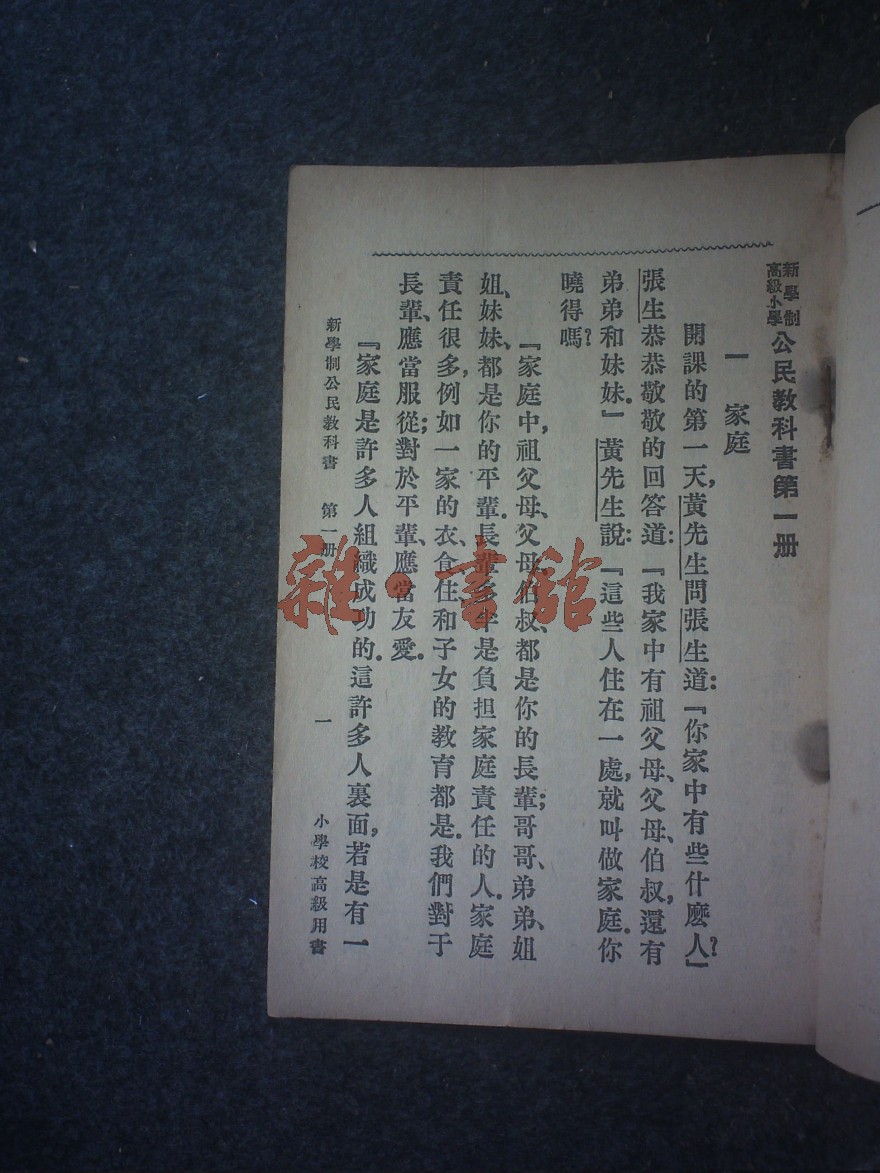 新學制
高級小學
公民教科書第一册
一　家庭
開課的第一天，黃先生問張生道：「你家中有些什麼人？」
張生恭恭敬敬的回答道：「我家中有祖父母、父母、伯叔，還有
弟弟和妹妹。」黃先生說：「這些人住在一處，就叫做家庭。你
曉得嗎？
「家庭中，祖父母、父母、伯叔、都是你的長輩；哥哥、弟弟、姐
姐、妹妹、都是你的平輩。長輩多半是負担家庭責任的人。家庭
責任很多，例如一家的衣、食、住和子女的教育都是。我們對于
長輩、應當服從；對於平輩、應當友愛。
「家庭是許多人組織成功的。這許多人裏面，若是有一
新學制公民教科書　第一册　一　小學校高級用書
雜·書館